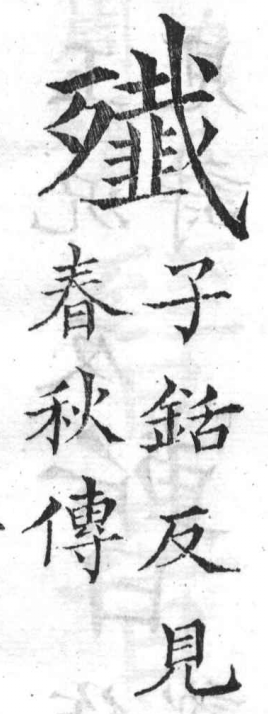 殲
子銛反見
春秋傳